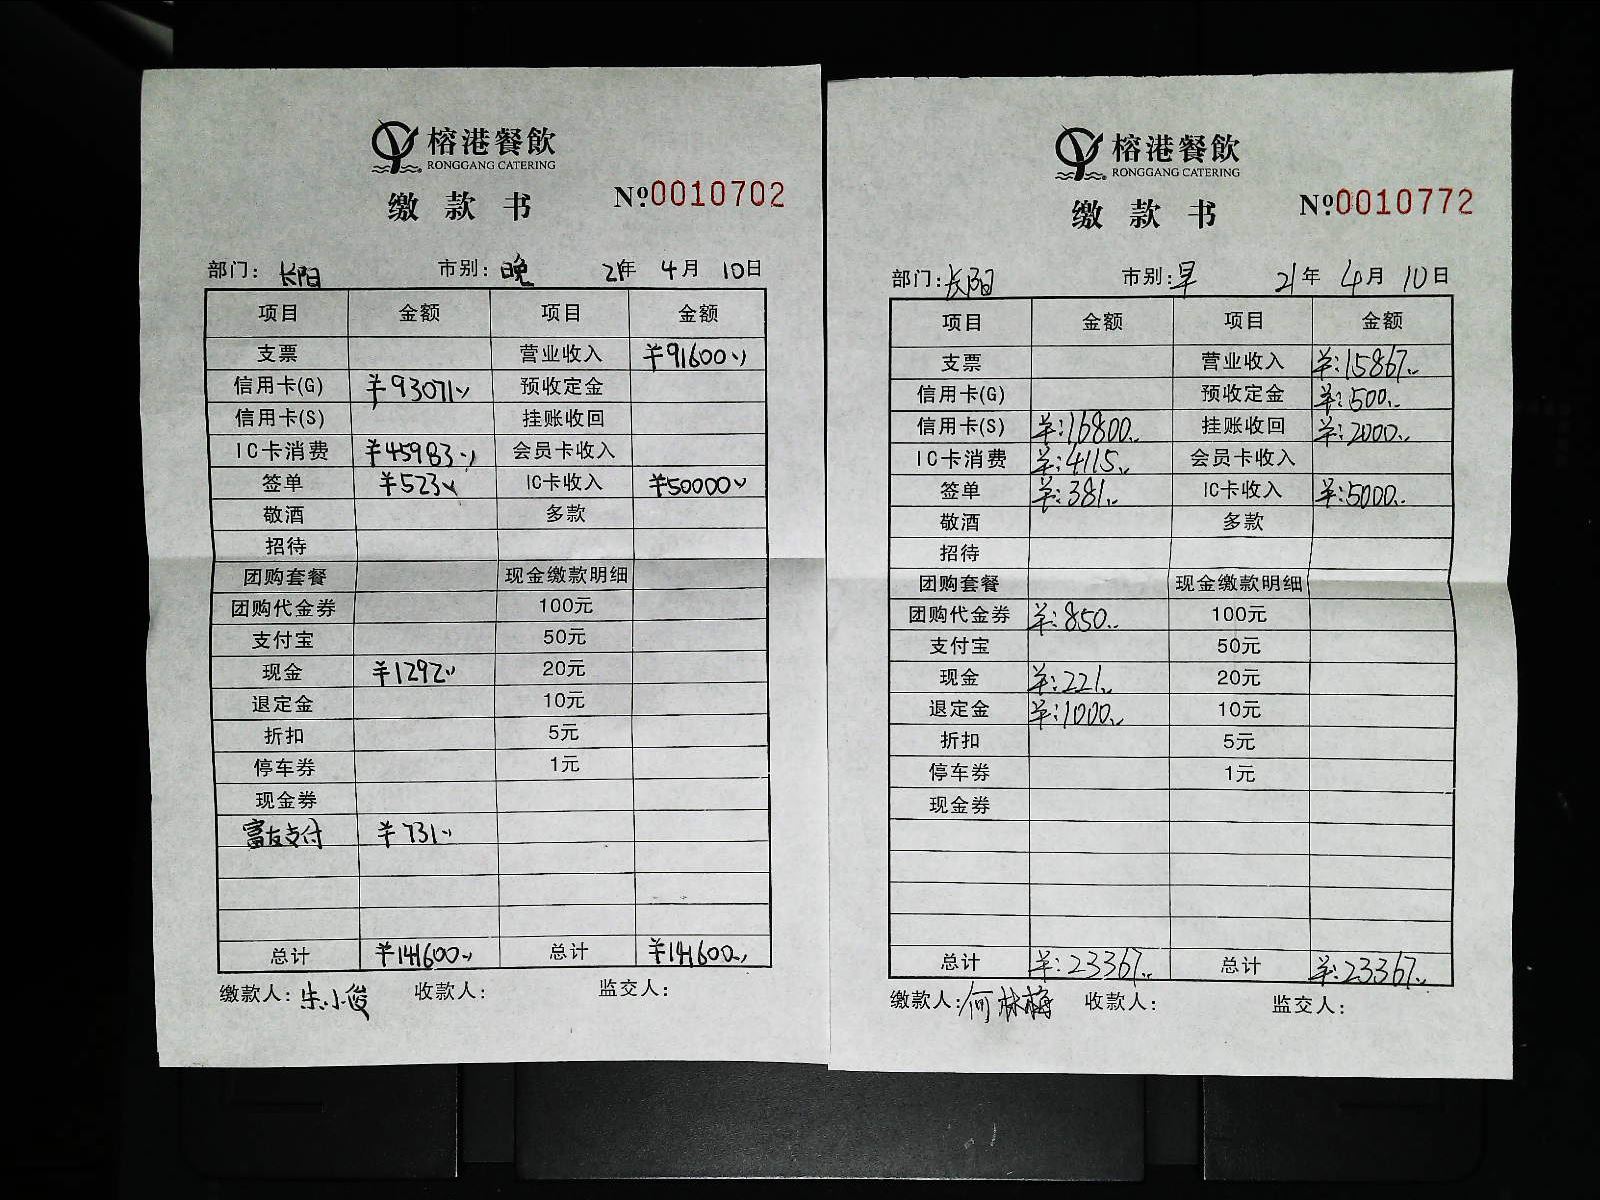 榕港餐飲
RONGGANG CATERING
缴款书 №0010702
部门：长阳 市别：晚 21年 4月 10日
项目 金额 项目 金额
支票 营业收入 ¥91600
信用卡(G) ¥93071 预收定金
信用卡(S) 挂账收回
IC卡消费 ¥45983 会员卡收入
签单 ¥523 IC卡收入 ¥50000
敬酒 多款
招待
团购套餐 现金缴款明细
团购代金券 100元
支付宝 50元
现金 ¥1292 20元
退定金 10元
折扣 5元
停车券 1元
现金券
富友支付 ¥731
总计 ¥141600 总计 ¥141600
缴款人：朱小俊 收款人： 监交人：
榕港餐飲
RONGGANG CATERING
缴款书 №0010772
部门：长阳 市别：早 21年 4月 10日
项目 金额 项目 金额
支票 营业收入 ¥:15867
信用卡(G) 预收定金 ¥:500
信用卡(S) ¥:16800 挂账收回 ¥:2000
IC卡消费 ¥:4115 会员卡收入
签单 ¥:381 IC卡收入 ¥:5000
敬酒 多款
招待
团购套餐 现金缴款明细
团购代金券 ¥:850 100元
支付宝 50元
现金 ¥:221 20元
退定金 ¥:1000 10元
折扣 5元
停车券 1元
现金券
总计 ¥:23367 总计 ¥:23367
缴款人：何林梅 收款人： 监交人：